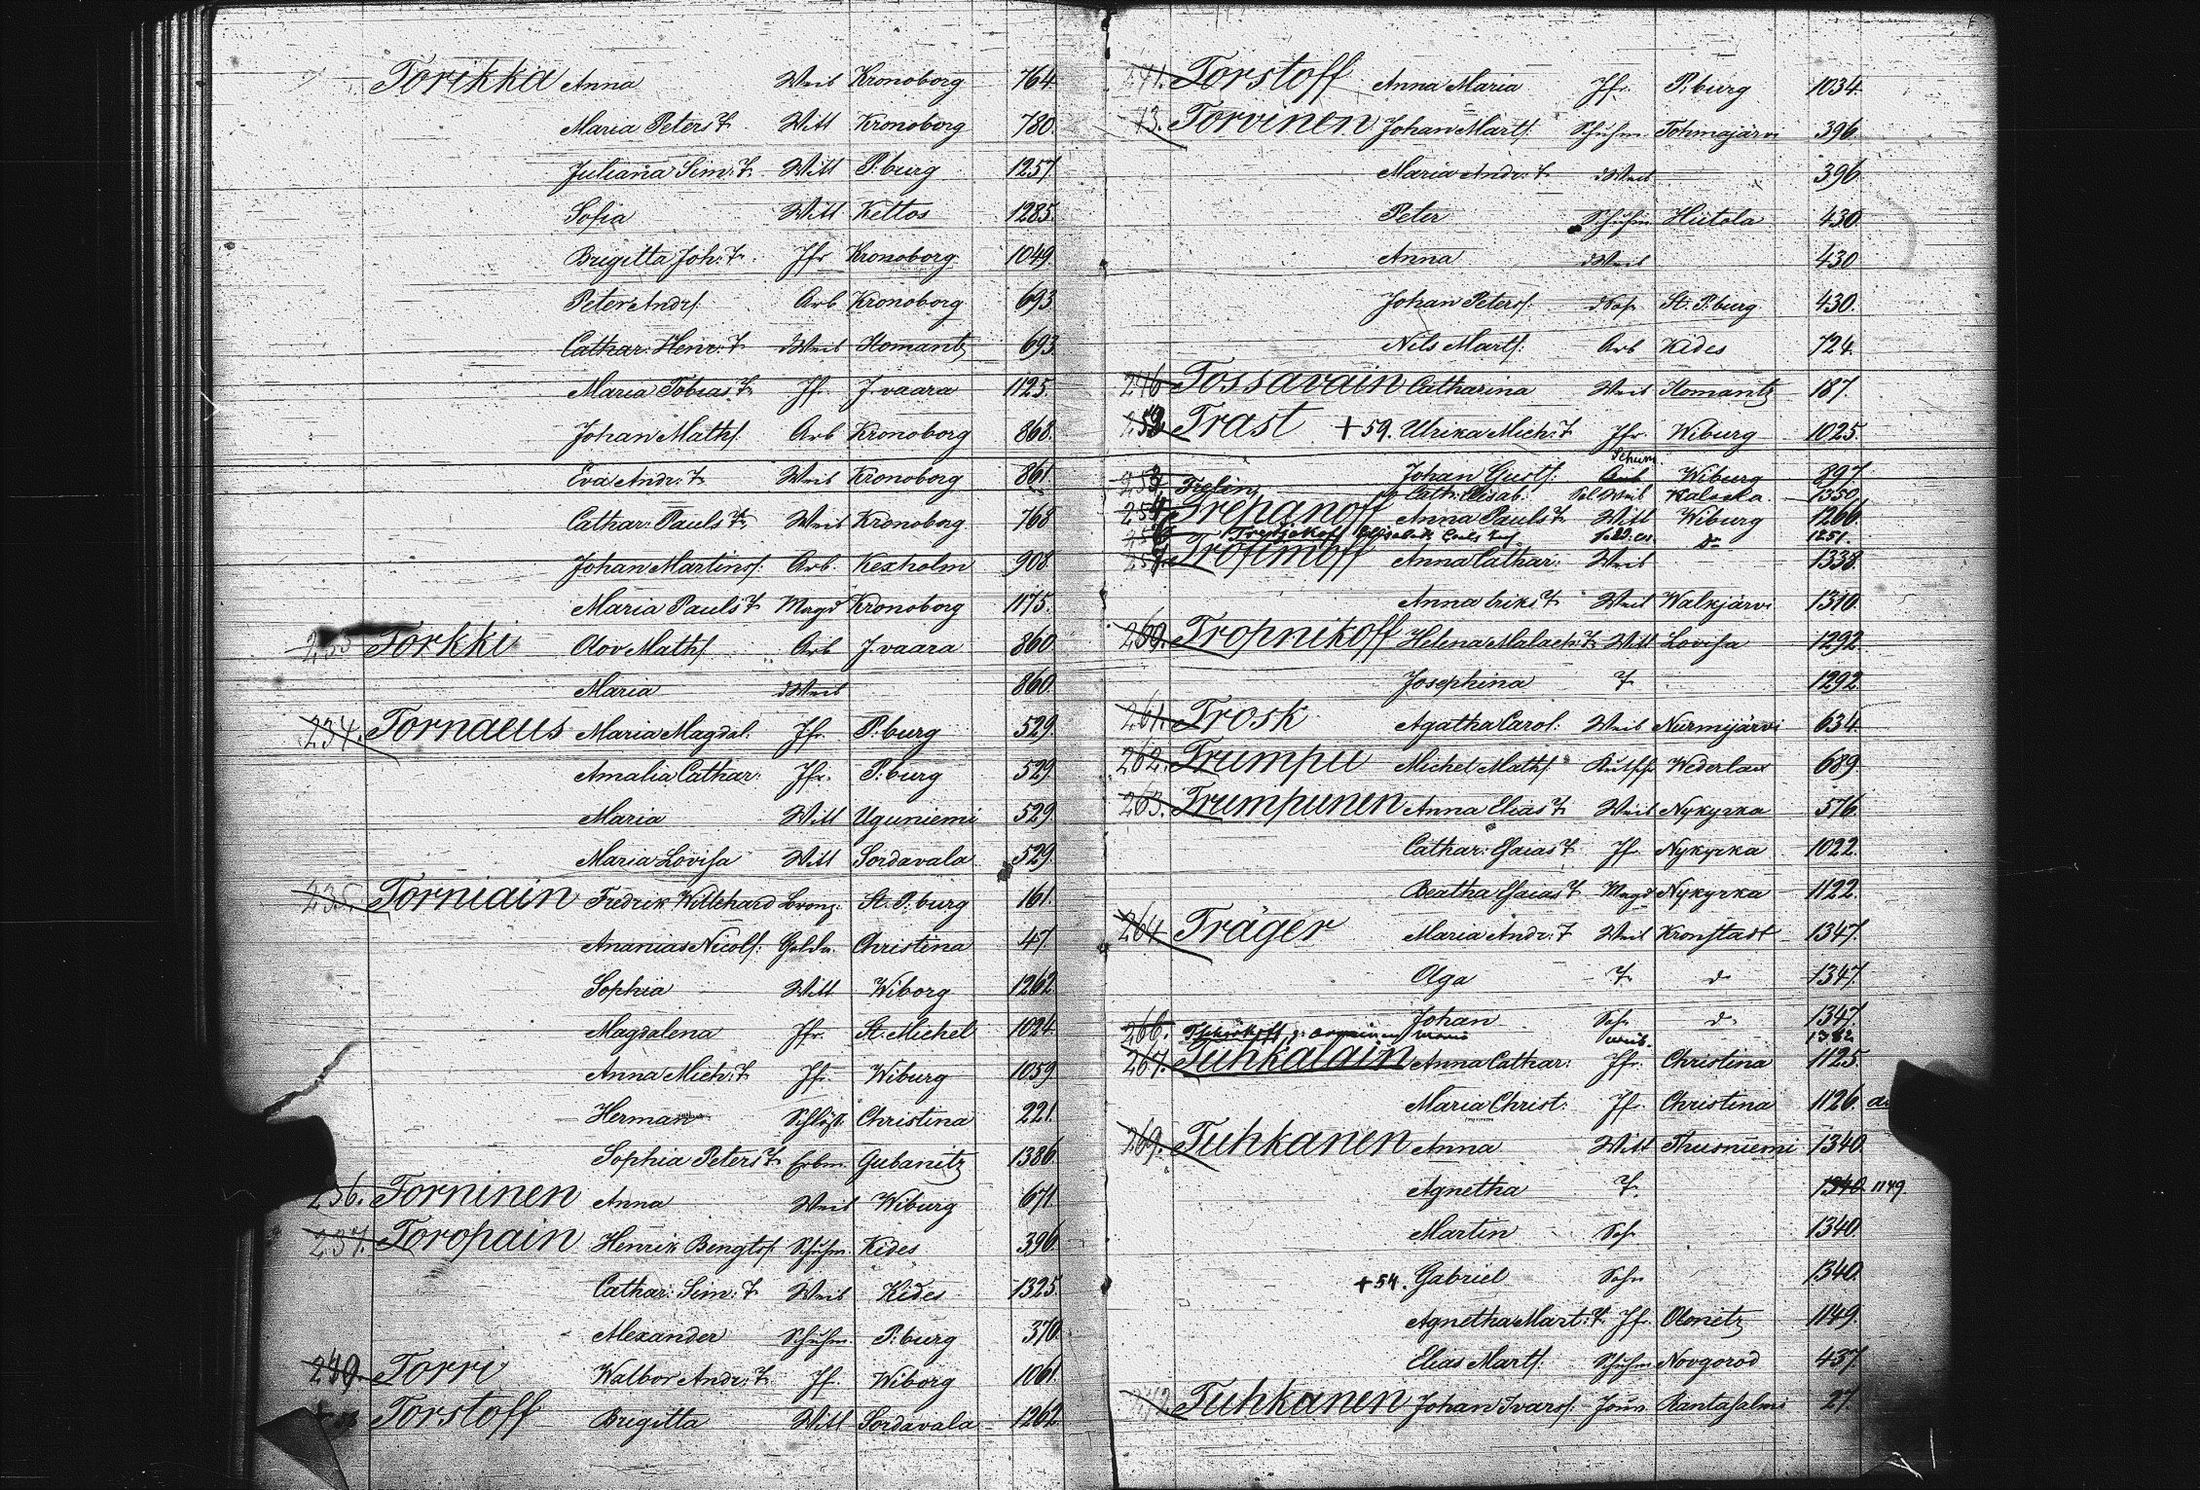 Torikka Anna Weib Kronoborg 764.
Maria Peters T. Witt Kronoborg 780.
Juliana Sim: T. Witt P:burg 1257.
Sofia Witt Keltos 1285.
Brigitta Joh: T. Jfr Kronoborg 1049.
Peter Andrs. Arb Kronoborg 693.
Cathar: Henr: T. d Weib Ilomantz 693.
Maria Tobias T. Jfr. J.vaara 1125.
Johan Maths. Arb Kronoborg 868.
Eva Andr: T. Weib Kronoborg 861.
Cathar: Pauls T. Weib Kronoborg 768
Johan Martins. Arb. Kexholm 908.
Maria Pauls T. Magd Kronoborg 1175.
233 Torkki Olov Maths. Arb J.vaara 860.
Maria d Weib 860.
234. Tornaeus Maria Magdal: Jfr. P:burg 529.
Amalia Cathar: Jfr. P:burg 529.
Maria Witt Uguniemi 529.
Maria Lovisa Witt Sordavala 529.
235. Torniain Fredrik Willehard St. P:burg 161.
Ananias Nicols: Golda. Christina 47.
Sophia Witt Wiborg 1262.
Magdalena Jfr. St. Michel 1024.
Anna Mich: T. Jfr. Wiburg 1059.
Herman Schloss. Christina 221.
Sophia Peters T. Gubanitz 1386.
236. Torninen Anna Weib Wiburg 671.
237. Toropain Henrik Bengts. Schuhm. Kides 396.
Cathar: Sim: T. Weib Kides 1325.
Alexander Schuhm. P:burg 370.
240. Torri Walbor Andr: T. Jf. Wiborg 1061.
Torstoff Brigitta Witt Sordavala 1262
241. Torstoff Anna Maria Jfr. P:burg 1034.
Torvinen Johan Marts. Schuhm. Tohmajärvi 396.
Maria Andr: T. d Weib 396
Peter Schuhm Hiitola 430.
Anna d Weib 430
Johan Peters. d Soh. St. P:burg 430.
Nils Marts: Arb Kides 724.
246 Tossavain Catharina Weib Ilomantz 187.
Trast + 59. Ulrika Mich: T Jfr. Wiburg 1025.
Johan Gusts: Schum. Arb Wiburg 297.
253 Cath: Elisab: Sol Weib 1350.
254 Trepanoff Anna Pauls T. Witt Wiburg 1266.
Tretjakoff Elisabeth do 1251.
257. Trofimoff Anna Cathar: Weib 1338.
Anna Eriks T. Weib Walkjärvi 1310.
260. Tropnikoff Helena Malach: T. Witt Lovisa 1292.
Josephina T. 1292
261. Trosk Agatha Carol: Weib Nurmijärvi 634.
262. Trumpu Michel Maths. Kutsch Wederlax 689.
263. Trumpunen Anna Elias T. Weib Nykyrka 576.
Cathar: Esaias T. Jf. Nykyrka 1022.
Beatha Esaias T. Magd Nykyrka 1122.
264 Träger Maria Andr: T Weib Kronstadt 1347.
Olga T. d. 1347.
Johan Soh. d. 1347.
266. Weib. 1382.
267. Tuhkalain Anna Cathar: Jfr. Christina 1125.
Maria Christ: Jf. Christina 1126.
269. Tuhkanen Anna Witt Thusniemi 1340.
Agnetha T. 1340. 1149.
Martin Soh. 1340.
+ 54. Gabriel Sohn 1340.
Agnetha Mart: T. Jf. Olonetz 1149.
Elias Marts: Schuhm Novgorod 437.
Tuhkanen Johan Ivars. Rantasalmi 27.